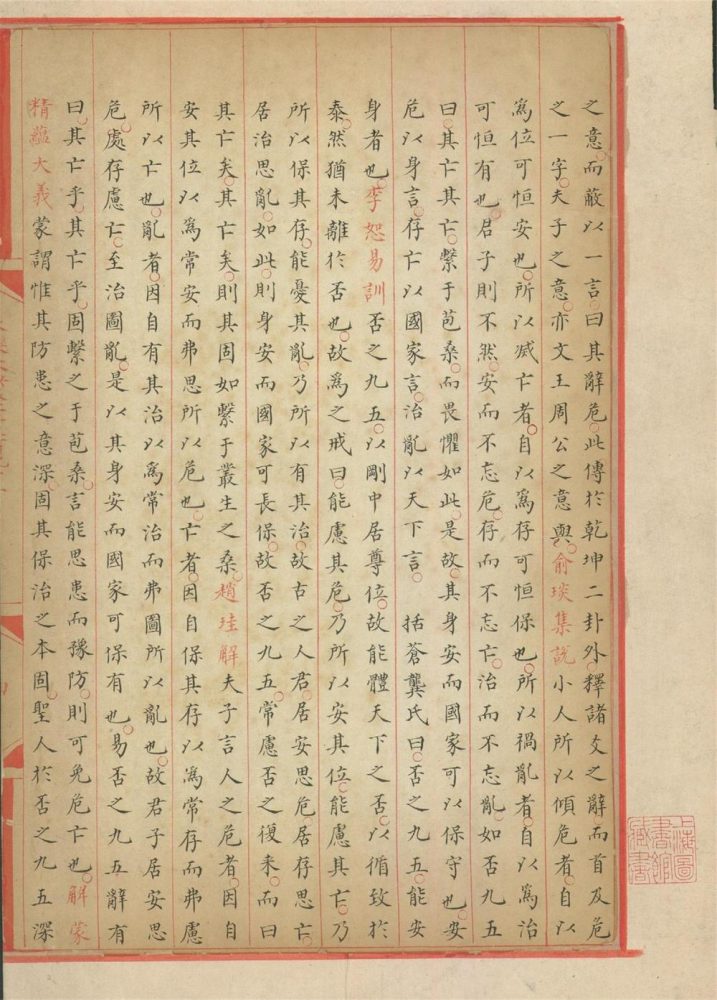 之意而蔽以一言曰其辭危此傳於乾坤二卦外釋諸爻之辭而首及危
之一字夫子之意亦文王周公之意與俞琰集説小人所以傾危者自以
為位可恒安也所以滅亡者自以為存可恒保也所以禍亂者自以為治
可恒有也君子則不然安而不忘危存而不忘亡治而不忘亂如否九五
曰其亡其亡繫于苞桑而畏懼如此是故其身安而國家可以保守也安
危以身言存亡以國家言治亂以天下言　括蒼龔氏曰否之九五能安
身者也李恕易訓否之九五以剛中居尊位故能體天下之否以循致於
泰然猶未離於否也故為之戒曰能慮其危乃所以安其位能慮其亡乃
所以保其存能憂其亂乃所以有其治故古之人君居安思危居存思亡
居治思亂如此則身安而國家可長保故否之九五常慮否之復来而曰
其亡矣其亡矣則其固如繫于叢生之桑趙珪解夫子言人之危者因自
安其位以為常安而弗思所以危也亡者因自保其存以為常存而弗慮
所以亡也亂者因自有其治以為常治而弗圖所以亂也故君子居安思
危處存慮亡至治圖亂是以其身安而國家可保有也易否之九五辭有
曰其亡乎其亡乎固繫之于苞桑言能思患而豫防則可免危亡也解蒙
精蘊大義蒙謂惟其防患之意深固其保治之本固聖人於否之九五深
上海圖
書館
藏書